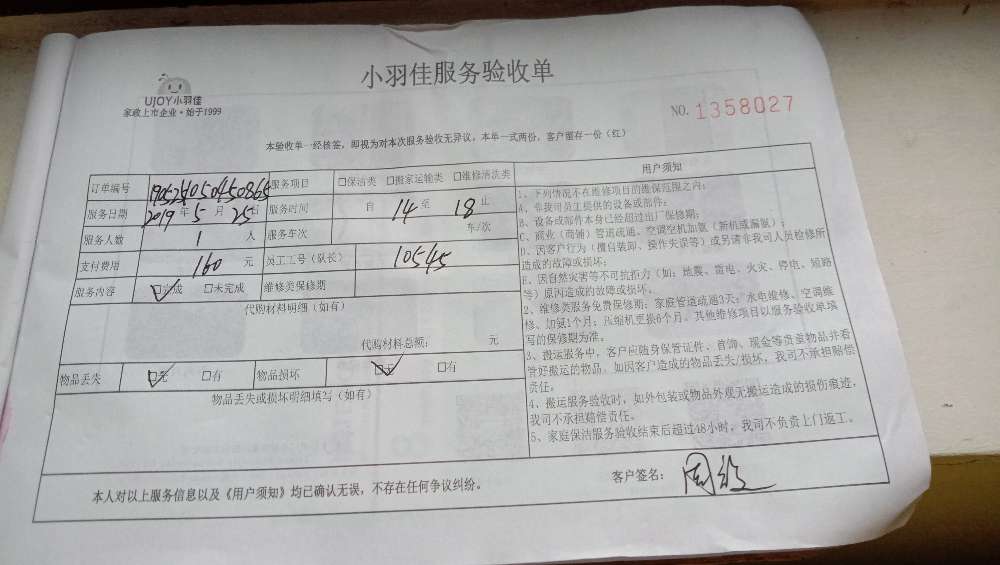 小羽佳服务验收单
UJOY小羽佳
家政上市企业·始于1999
NO. 1358027
本验收单一经核签，即视为对本次服务验收无异议，本单一式两份，客户留存一份（红）
订单编号 服务项目 □保洁类 □搬家运输类 □维修清洗类
服务日期 2019 年 5 月 25 日 服务时间 自 14 至 18 止
服务人数 1 人 服务车次 车/次
支付费用 160 元 员工工号（队长） 10545
服务内容 ☑完成 □未完成 维修类保修期
代购材料明细（如有）
代购材料总额： 元
物品丢失 ☑无 □有 物品损坏 ☑无 □有
物品丢失或损坏明细填写（如有）
用户须知
1、下列情况不在维修项目的维保范围之内：
A、非我司员工提供的设备或部件；
B、设备或部件本身已经超过出厂保修期；
C、商业（商铺）管道疏通、空调空机加氨（新机或漏氨）；
D、因客户行为（擅自装卸、操作失误等）或另请非我司人员检修所
造成的故障或损坏；
E、因自然灾害等不可抗拒力（如：地震、雷电、火灾、停电、短路
等）原因造成的故障或损坏。
2、维修类服务免费保修期：家庭管道疏通3天；水电维修、空调维
修、加氨1个月；压缩机更换6个月。其他维修项目以服务验收单填
写的保修期为准。
3、搬运服务中，客户应随身保管证件、首饰、现金等贵重物品并看
管好搬运的物品，如因客户造成的物品丢失/损坏，我司不承担赔偿
责任。
4、搬运服务验收时，如外包装或物品外观无搬运造成的损伤痕迹，
我司不承担赔偿责任。
5、家庭保洁服务验收结束后超过48小时，我司不负责上门返工。
本人对以上服务信息以及《用户须知》均已确认无误，不存在任何争议纠纷。
客户签名：